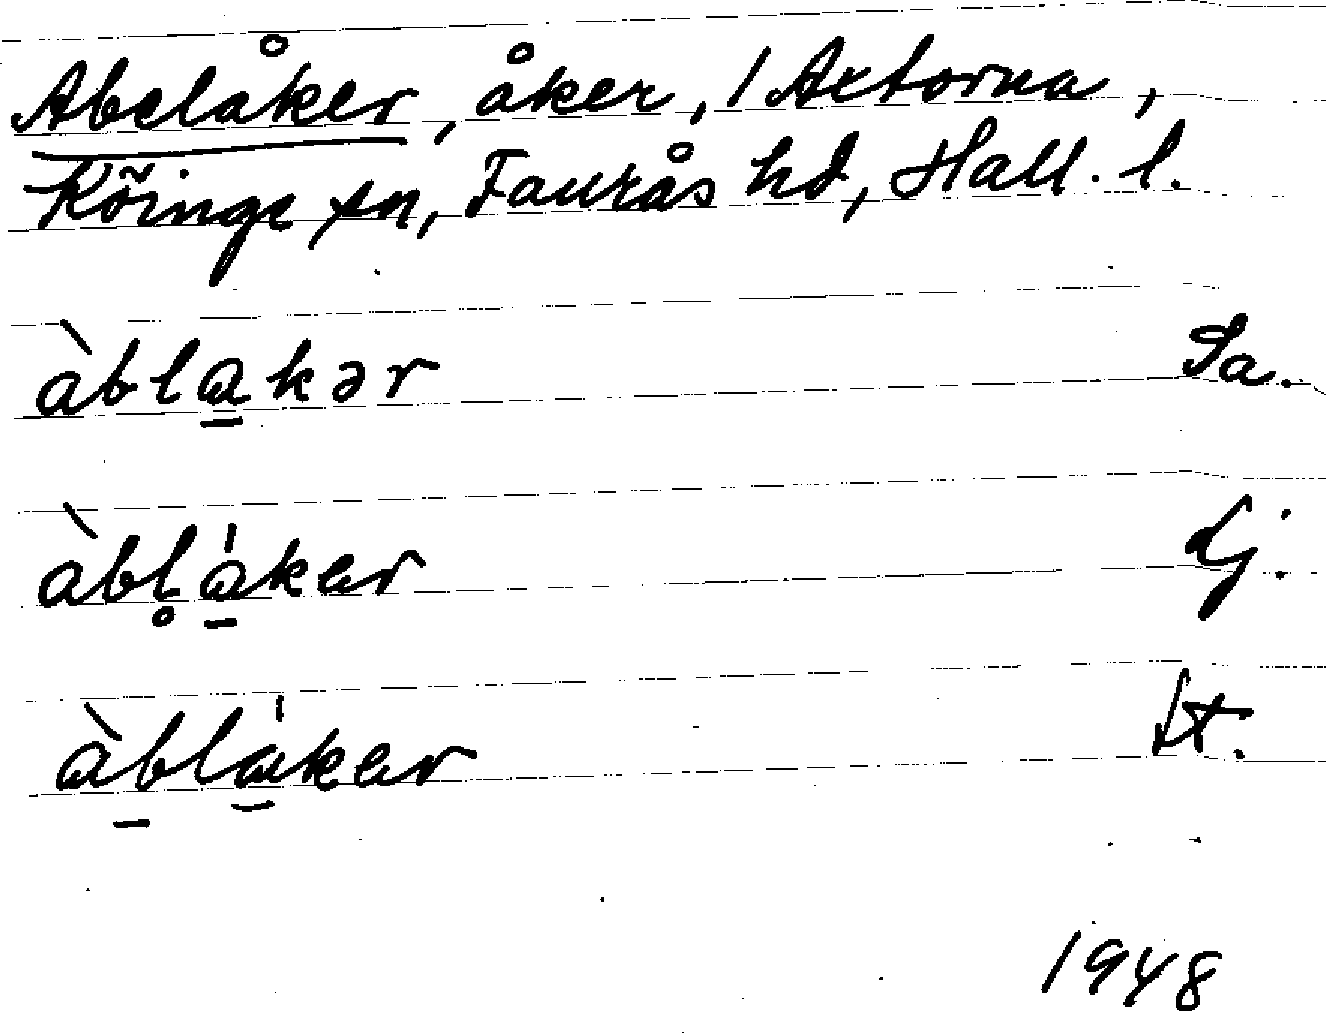 Abelåker, åker, 1 Axtorna,
Köinge sn, Faurås hd, Hall. l.
àblakər Sa.
àbl̥a̍ker Lj.
àbla̍ker St.
1948